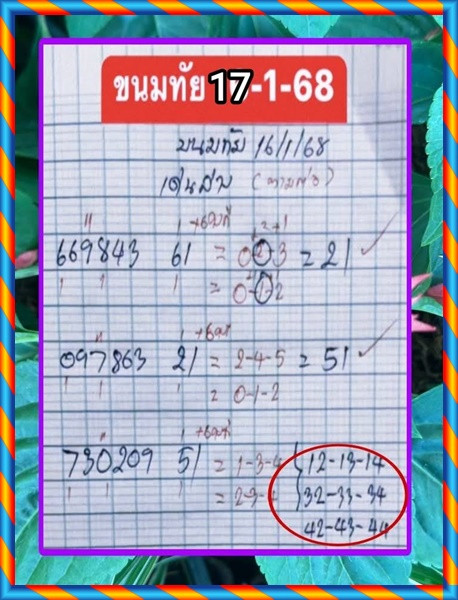 ขนมทัย 17-1-68
ขนมทัย 16/1/68
เด่นสิบ (ตามต่อ)
669843 61 = 0-2-3 = 21
= 0-1-2
097863 21 = 2-4-5 = 51
= 0-1-2
730209 51 = 1-3-4 12-13-14
= 2-3-4 32-33-34
42-43-44